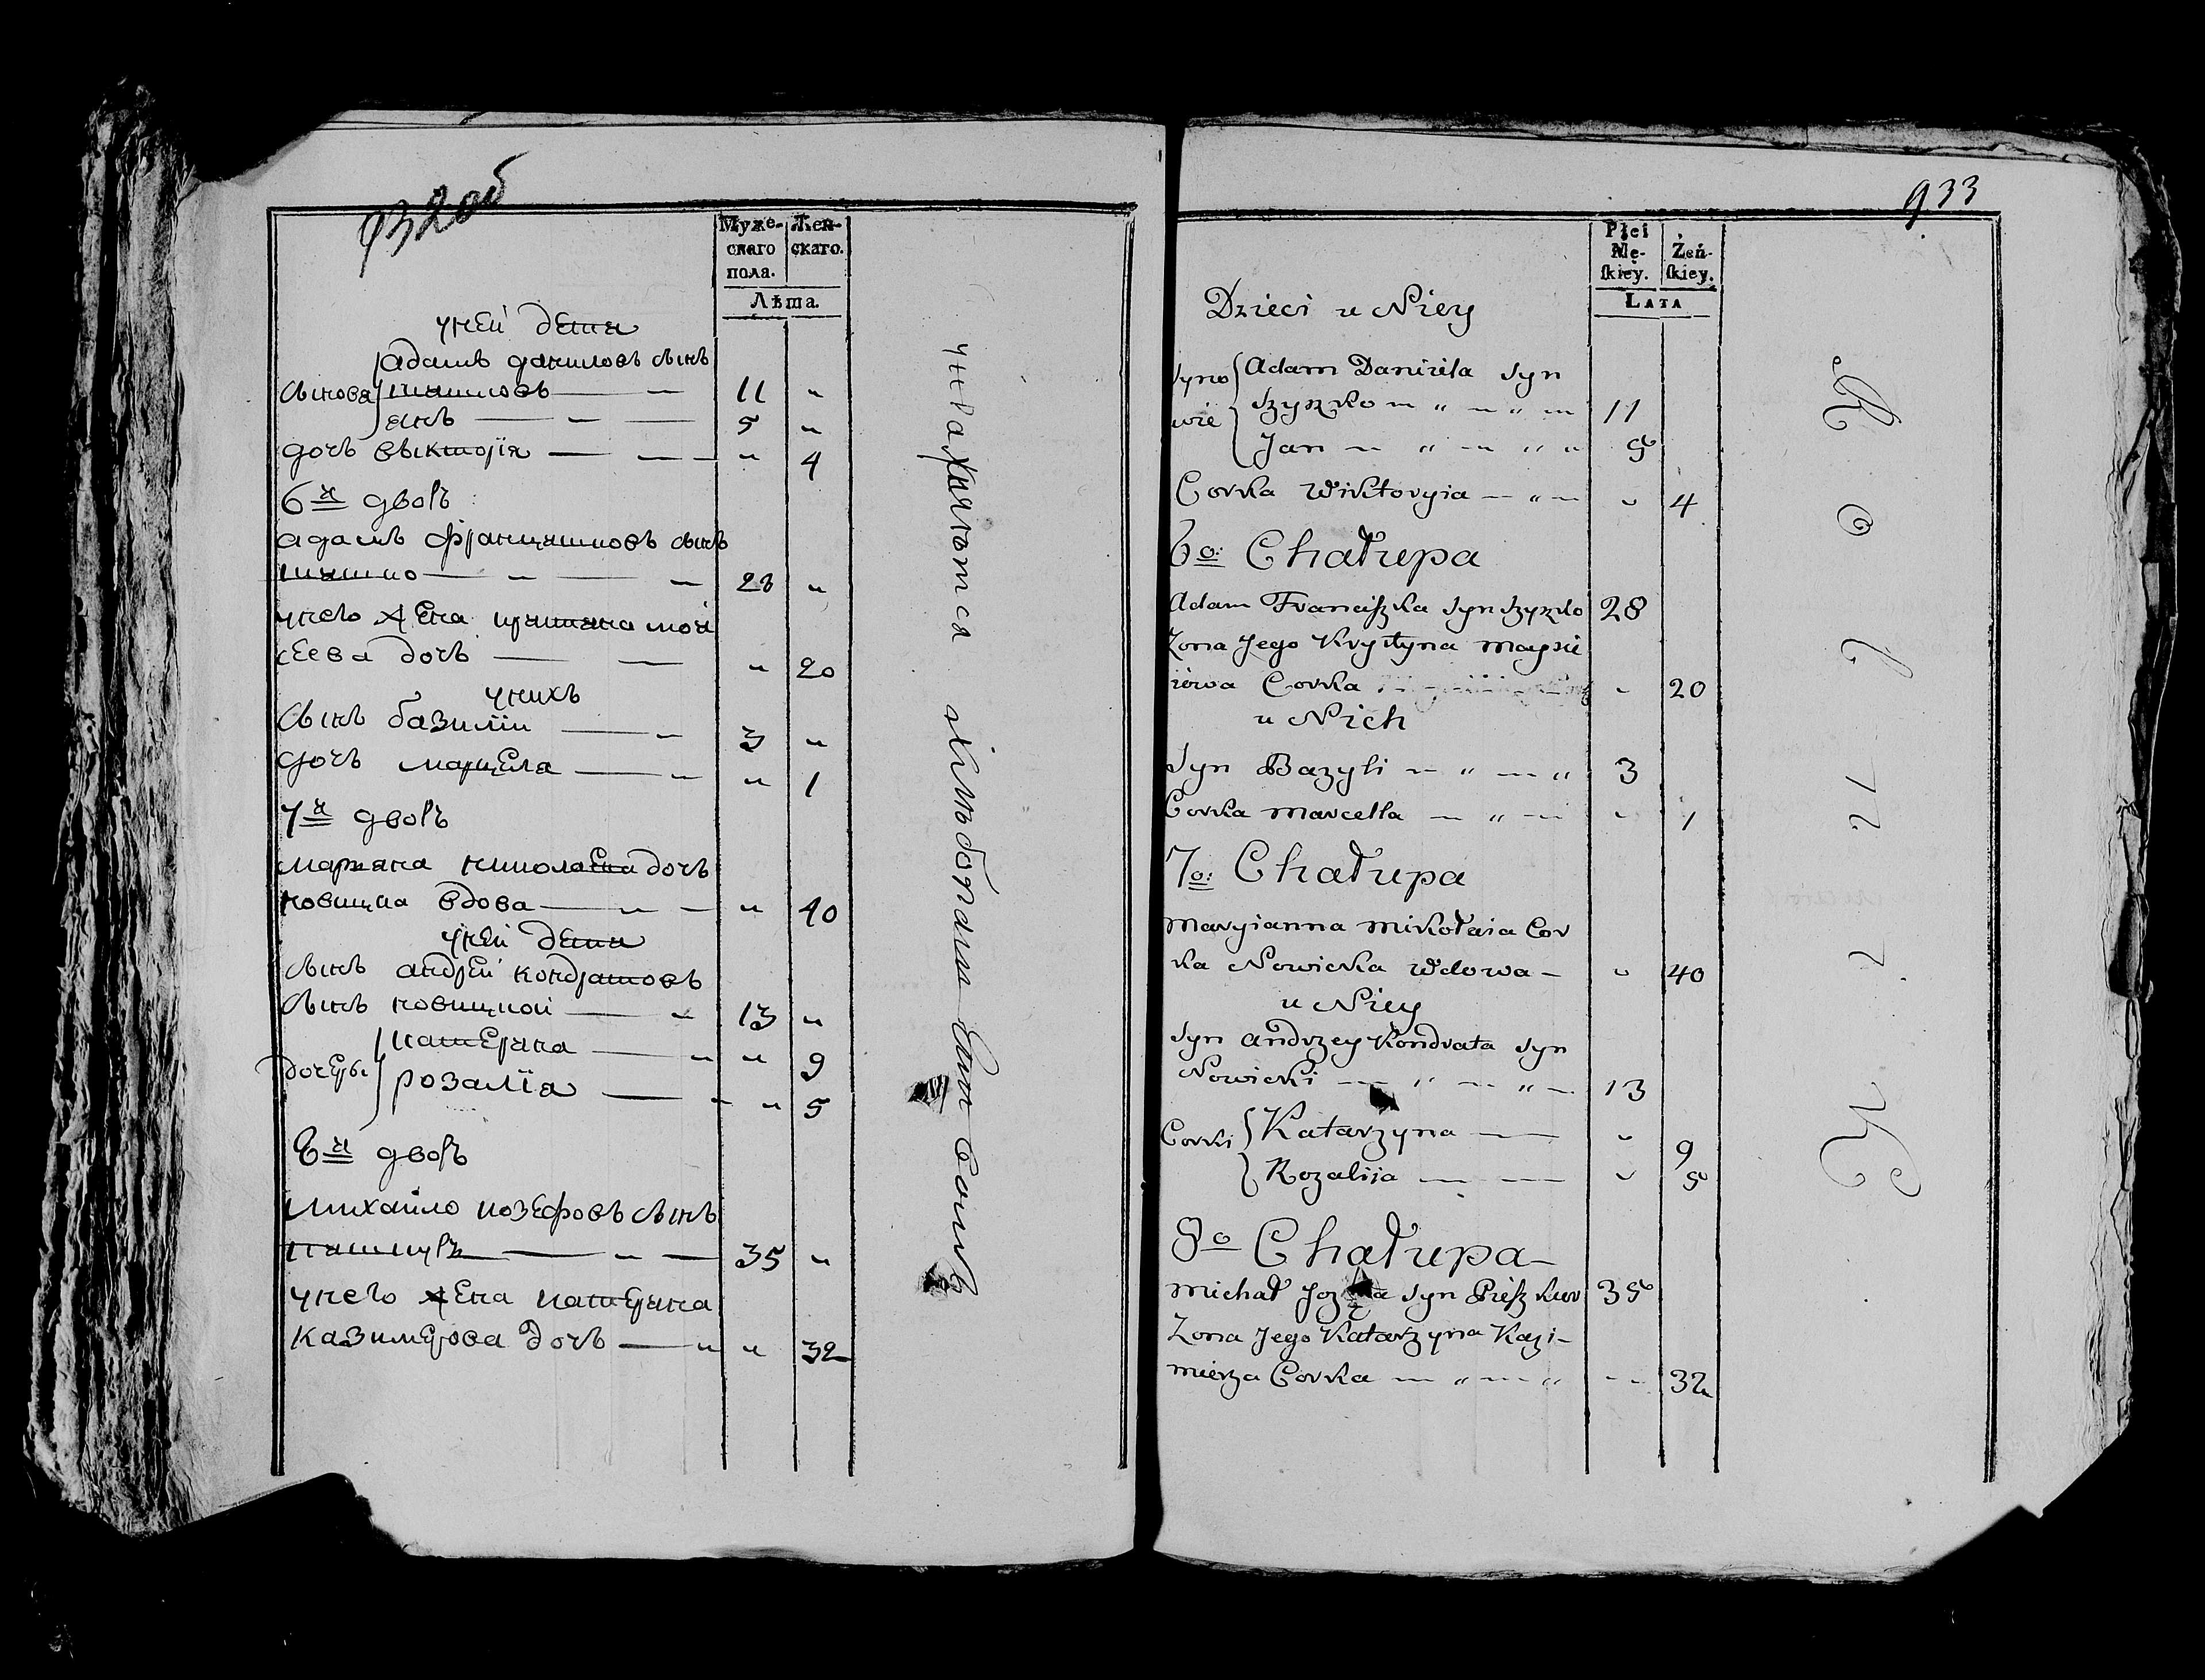 932об
Муже-
скаго
пола.
Жен-
скаго.
Лѣта.
у ней дети
сынова
адамъ даниловъ сынъ
шишковъ 11 "
янъ 5 "
дочь выкторія " 4
6й дворъ
адамъ францишковъ сынъ
шишко 28 "
у него жена криштина мои
сеева дочь " 20
у нихъ
сынъ базилiи 3 "
дочь марцела " 1
7й дворъ
марьяна николаева дочь
новицка вдова " 40
у ней дети
сынъ андрей кондратовъ
сынъ новицкой 13 "
дочеры
катерина " 9
розалiя " 5
8й дворъ
михайло иозефовъ сынъ
35 "
у него жена катерина
казимерова дочь " 32
933
Płci
Mę-
skiey.
Żeń-
skiey.
LATA
Dzieci u Niey
Syno
wie
Adam Daniela Syn
Szyszko 11
Jan 5
Corka Wiktoryia " 4
6o: Chałupa
Adam Franciszka Syn Szyszko 28
Zona Jego Krystyna Maysie
iowa Corka " 20
u Nich
Syn Bazyli 3
Corka Marcella " 1
7o: Chałupa
Maryianna Mikołaia Cor
ka Nowicka Wdowa " 40
u Niey
Syn Andrzey Kondrata Syn
Nowicki 13
Corki
Katarzyna " 9
Rozalija " 5
8o Chałupa
Michał Jozefa Syn Pieszkur 35
Zona Jego Katarzyna Kazi-
mierza Corka 32